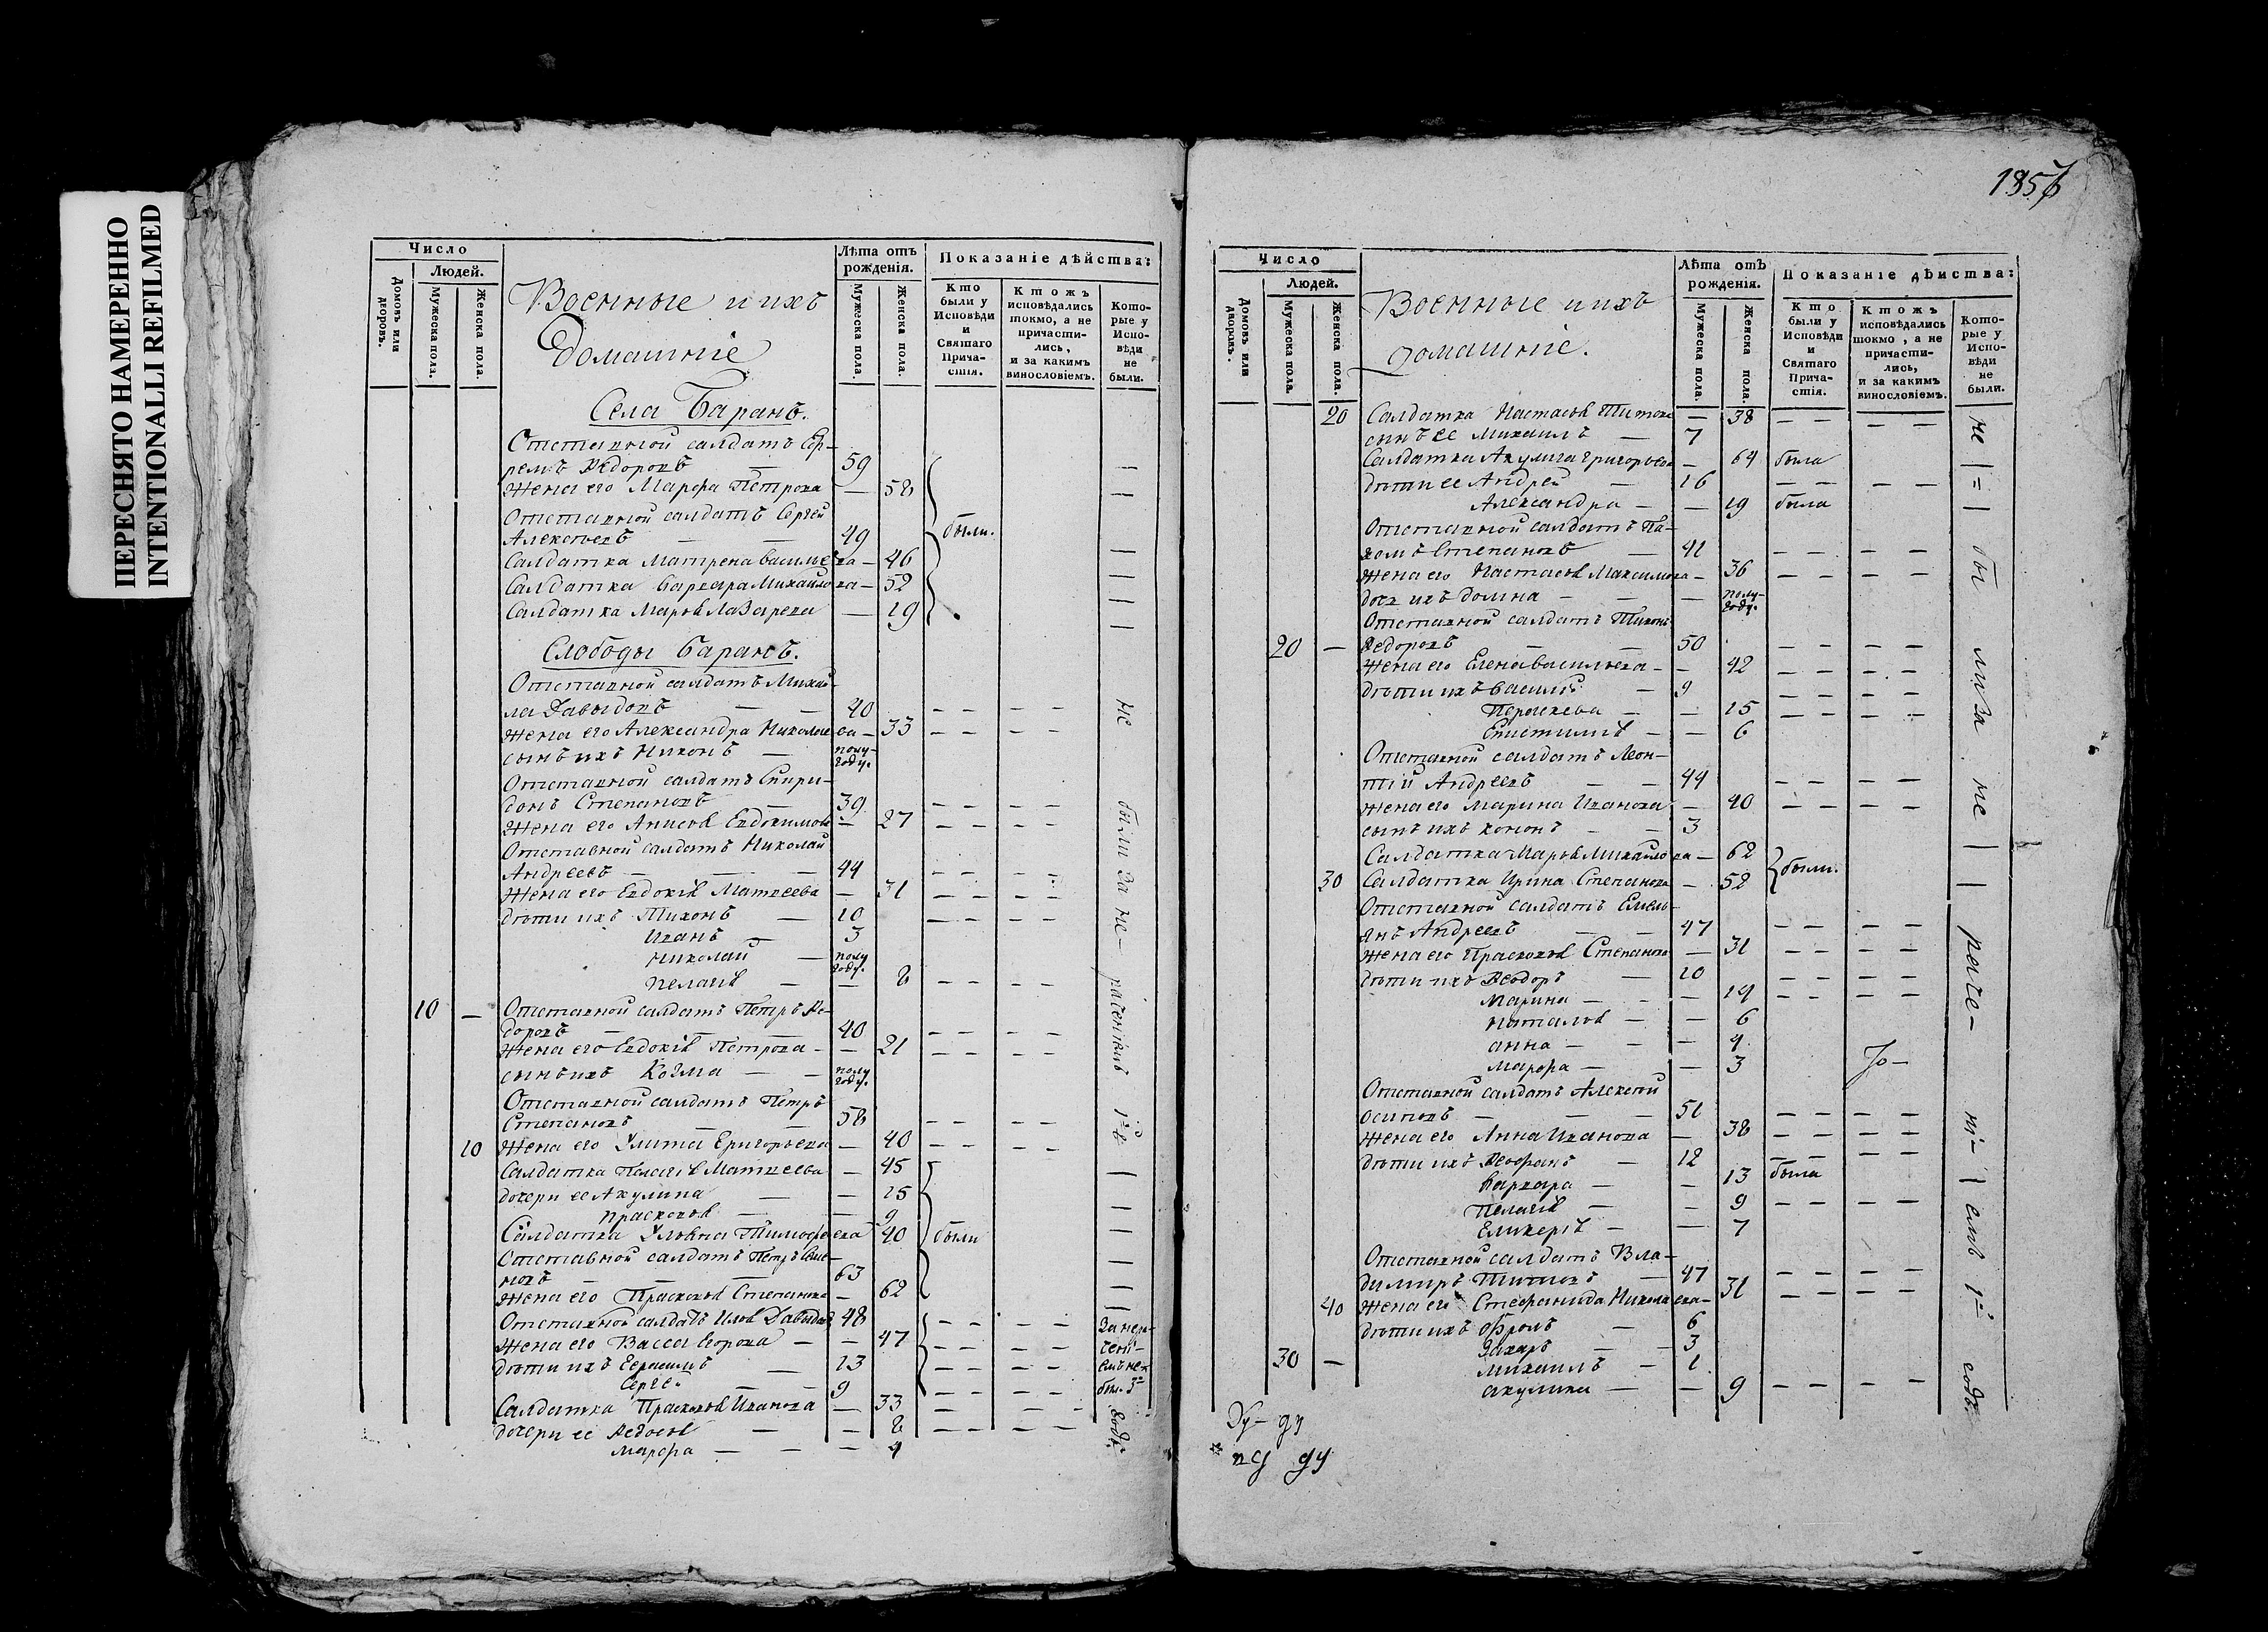 ПЕРЕСНЯТО НАМЕРЕННО
INTENTIONALLI REFILMED
Число
Людей.
Домовъ или дворовъ.
Мужеска пола.
Женска пола.
Военные и ихъ
Домашніе
Лѣта отъ рожденія.
Мужеска пола.
Женска пола.
Показаніе дѣйства:
Кто были у Исповѣди и Святаго Прича-стія.
Ктожъ исповѣдались токмо, а не причасти-лись, и за какимъ винословіемъ.
Кото-рые у Испо-вѣди не были.
Села Баранъ.
Отставной салдатъ
Ѳедоровъ — 59 —
Жена его Марѳа Петрова — 58 —
Отставной салдатъ Сергей
Алексѣевъ — — 49 были.
Салдатка Матрена Василье ва — 46 —
Салдатка Варвара Михайло ва — 52 —
Салдатка Марья Лазарева — 29 —
Слободы Баранъ.
Отставной салдатъ Михай-
ла Давыдовъ — — 40 — — — —
Жена его Александра Николае ва — 33 — — — —
сынъ ихъ Никонъ — полу-году.
Отставной салдатъ Спири-
донъ Степановъ — 39 — — — —
Жена его Анисья Евдокимова — 27 — — — —
Отставной салдатъ Николай
Андреевъ — — 44 — — — —
Жена его Евдокія Матвеева — 31 — — — —
дѣти ихъ Тихонъ — 10 — — — —
Иванъ — 3
Николай — полу году.
Пелагія — — 8 — — — —
10 — Отставной салдатъ Петръ Ѳе-
доровъ — — 40 — — — —
Жена его Евдокія Петрова — — 21 — — — —
сынъ ихъ Козма — — полу году.
Отставной салдатъ Петръ
Степановъ — — 58 — — — —
10 Жена его Улита Григорьева — 40 — — — —
Салдатка Пелагія Матвеева — 45 —
дочери ее Акулина — — 15 —
Прасковья — — 9 —
Салдатка Ульяна Тимофе ева 40 были —
Отставной салдатъ Петръ Семе-
новъ — — 63 —
Жена его Прасковья Степанова — 62 —
Отставной салдатъ Илья Давыдовъ 48 — — — —
Жена его Васса Егорова — — 47 — — — —
дѣти ихъ Герасимъ — 13 — — — —
Сергей — — 9 — — — —
Салдатка Прасковья Иванова — 33 — — —
дочери ее Ѳедосья — — 8 — — — —
Марѳа — — — 4
не были за не- раченіемъ 1й годъ.
1857
Число
Людей.
Домовъ или дворовъ.
Мужеска пола.
Женска пола.
Военные и ихъ
домашніе.
Лѣта отъ рожденія.
Мужеска пола.
Женска пола.
Показаніе дѣйства:
Кто были у Исповѣди и Святаго Прича-стія.
Ктожъ исповѣдались токмо, а не причасти-лись, и за какимъ винословіемъ.
Кото-рые у Испо-вѣди не были.
20 Салдатка Настасья Титова — 38 — — — —
сынъ ее Михаилъ — 7
Салдатка Акулина Григорьева — 64 была
дѣти ее Андрей — 16 — — — —
Александра — — 19 была
Отставной салдатъ Па-
хомъ Степановъ — 41 — — — —
Жена его Настасья Максимо ва — 36 — — — —
дочь ихъ Домна — — — полу-году.
Отставной салдатъ Тихонъ
20 — Ѳедоровъ — — 50 — — — —
Жена его Елена Васильева — — 42 — — — —
дѣти ихъ Василій — 9 — — — —
Парасковья — — 15 — — — —
Епистимія — — 6
Отставной салдатъ Леон-
тій Андреевъ — — 44 — — — —
Жена его Марина Иванова — 40 — — — —
сынъ ихъ Кононъ — — 3
Салдатка Марья Михайло ва — 62
30 Салдатка Ирина Степанова — 52 были.
Отставной салдатъ Емель-
янъ Андреевъ — — 47 — — — —
Жена его Прасковья Степанова — 31 — — — —
дѣти ихъ Ѳеодоръ — 10 — — — —
Марина — — — 14 — — — —
Наталья — — 6
Анна — — — 4
Марѳа — — 3
Отставной салдатъ Алексѣй
Осиповъ — — — 51 — — — —
Жена его Анна Иванова — 38 — — — —
дѣти ихъ Ѳеофанъ — 12 — — — —
Варвара — — 13 была
Пелагія — — 9 — — — —
Гликерія — — 7
Отставной салдатъ Вла-
димиръ Титовъ — 47 — — — —
40 Жена его Стефанида Никола ева — 31 — — — —
дѣти ихъ Фролъ — 6
Захаръ — — 3
30 — Михаилъ — 1
Акулина — — 9 — — — —
не бы ли за не раче- ні- емъ 1й годъ.